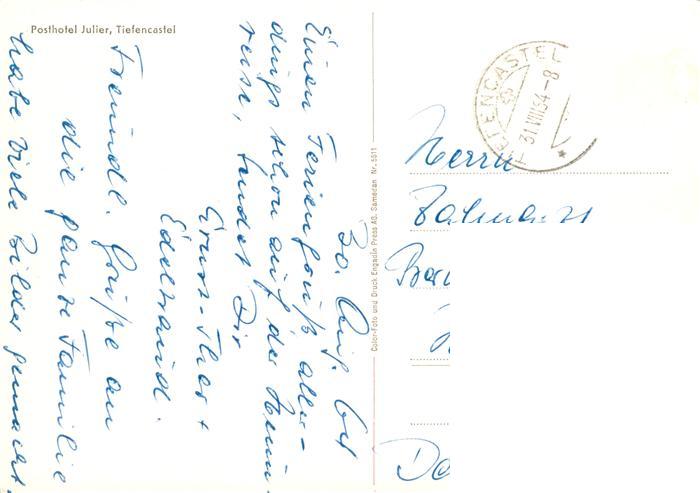 Posthotel Julier, Tiefencastel
30. Aug. 64
Einen Feriengruß aller-
dings schon auf der Heim-
reise, sendet Dir
Ernst-Theo +
Edeltraud.
Freundl. Grüße an
die ganze Familie
habe viele Bilder gemacht.
Color-Foto und Druck Engadin Press AG, Samedan Nr. 5511
TIEFENCASTEL
31.VIII.64-8
Herrn
Zahnarzt